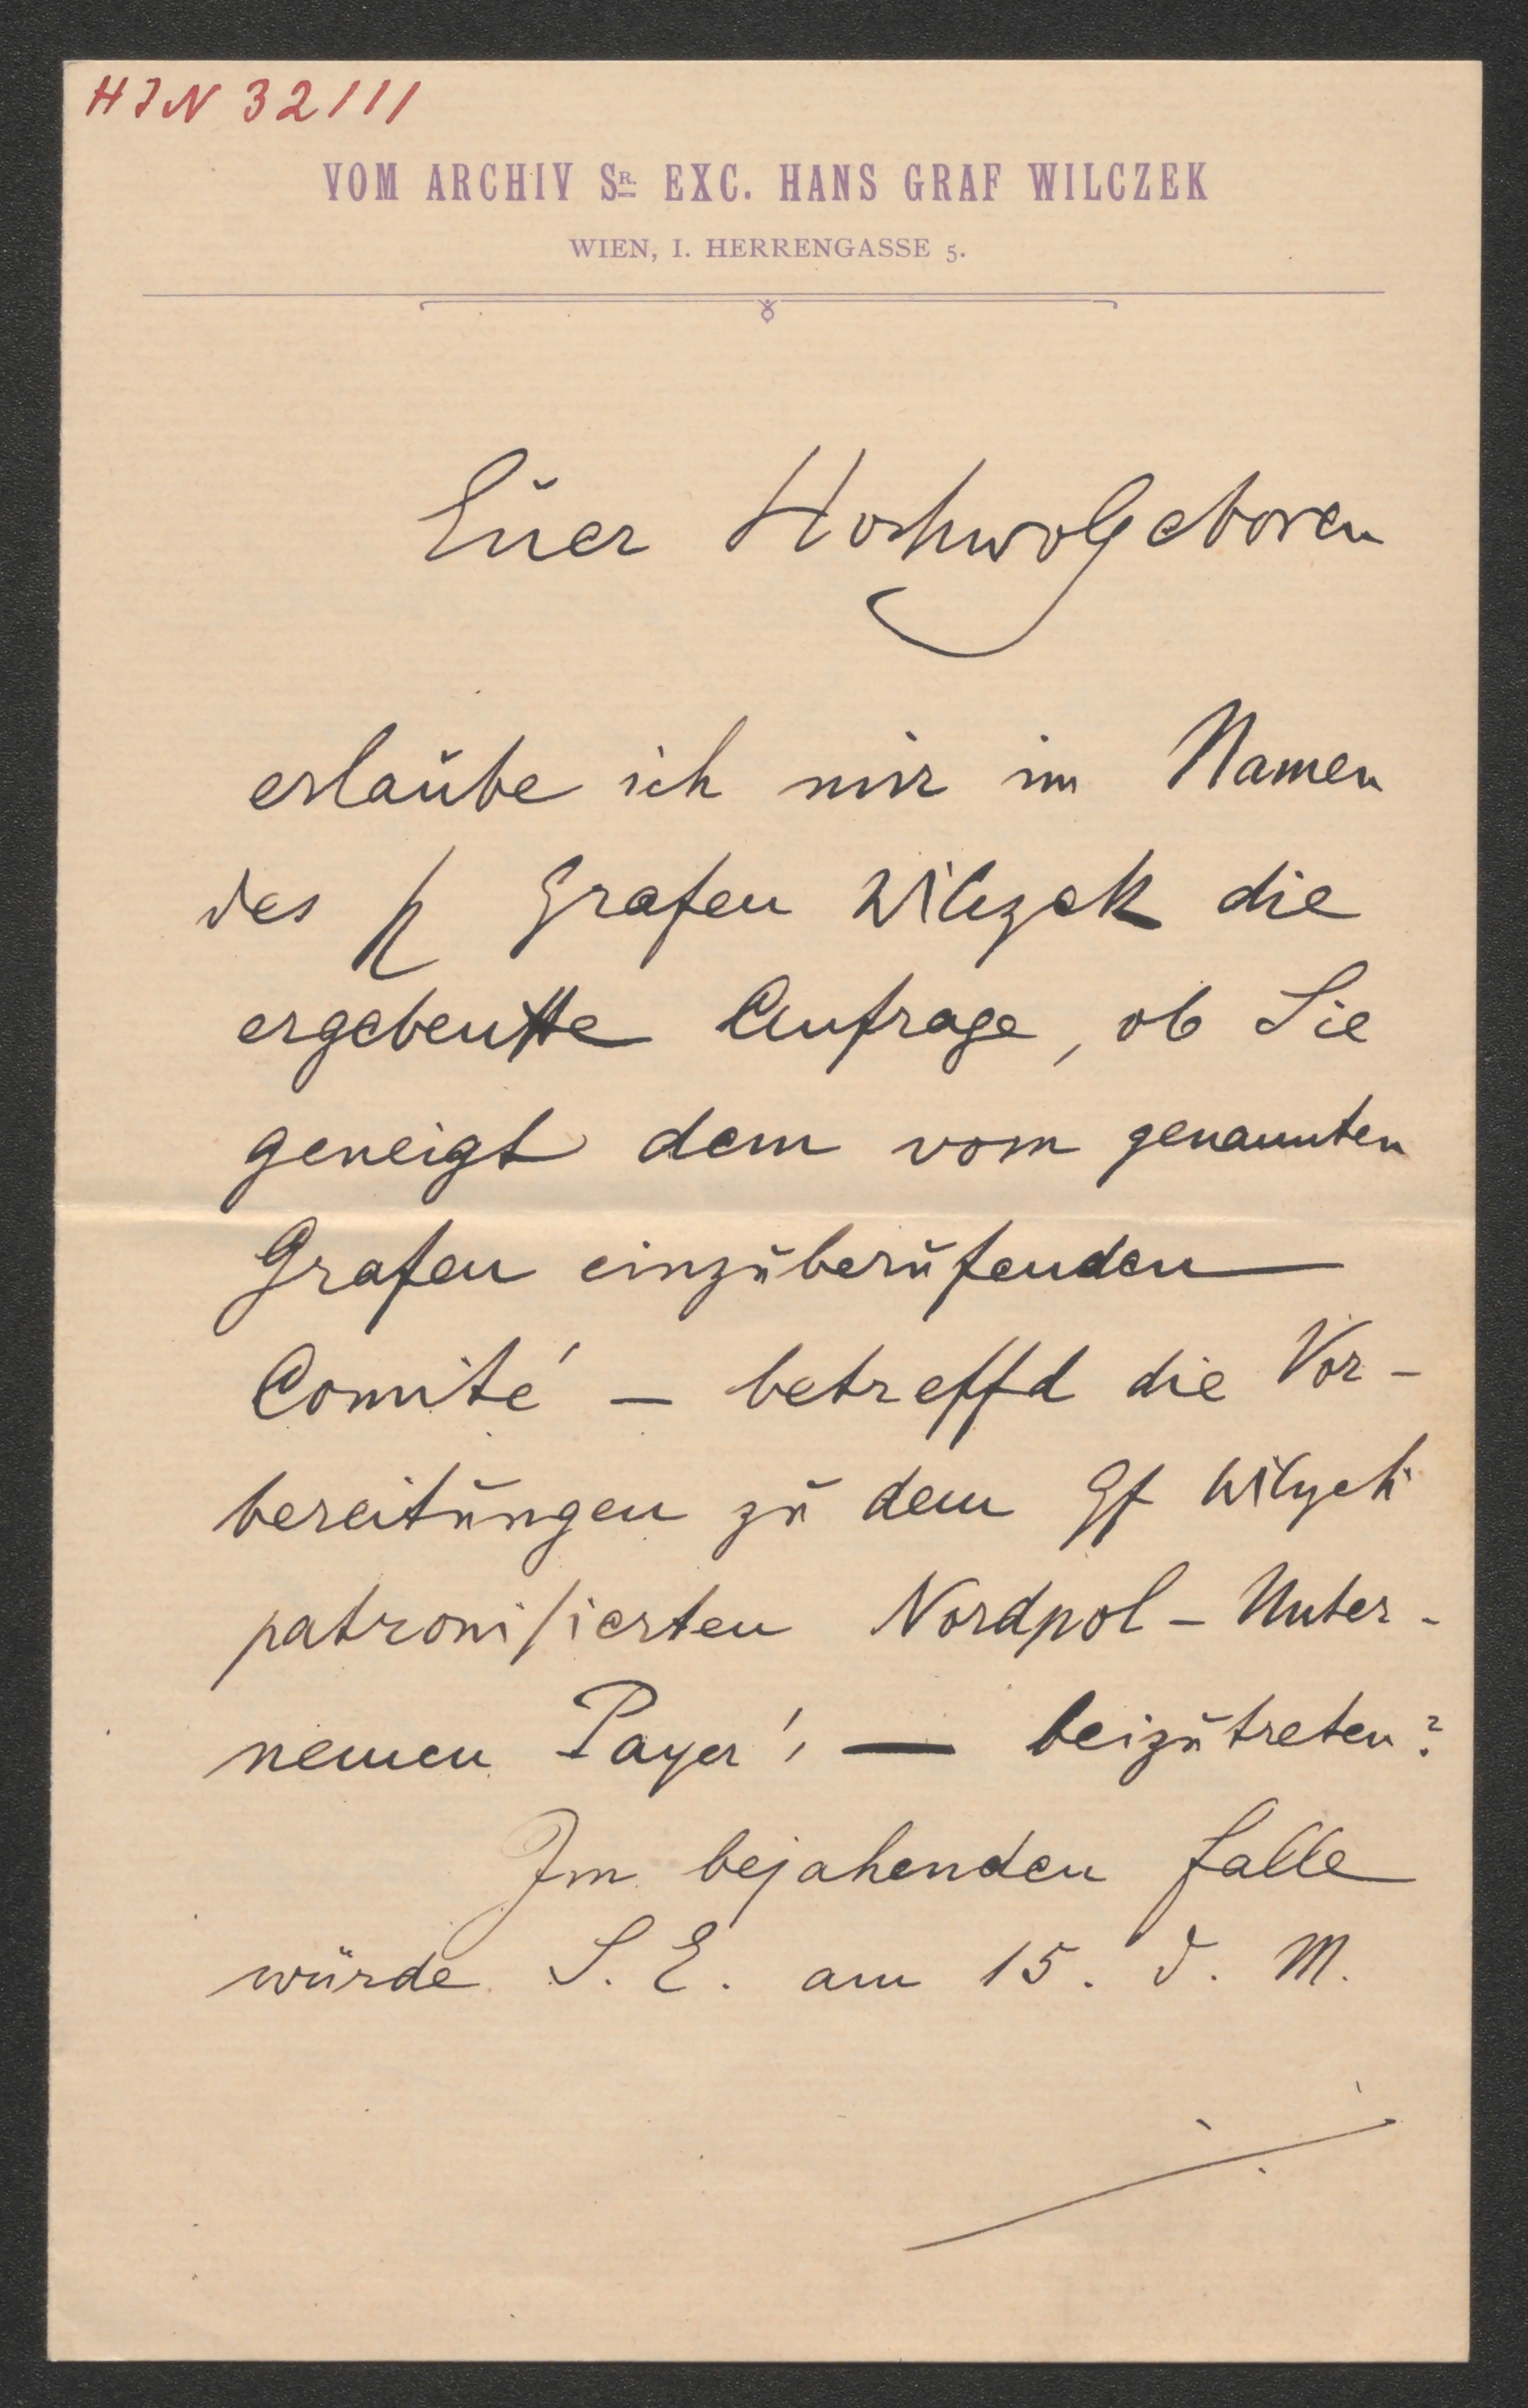 HIN 32111
VOM ARCHIV SR. EXC. HANS GRAF WILCZEK
WIEN, I. HERRENGASSE 5.
Euer Hochwolgeboren
erlaube ich mir im Namen
des H Grafen Wilczek die
ergebenste Anfrage, ob Sie
geneigt dem vom genannten
Grafen einzuberufenden
Comité – betreffd die Vor-
bereitungen zu dem Gf Wilczek
patronisierten Nordpol-Unter-
nemen Payer's — beizutreten?
Im bejahenden Falle
würde S. E. am 15. d. M.